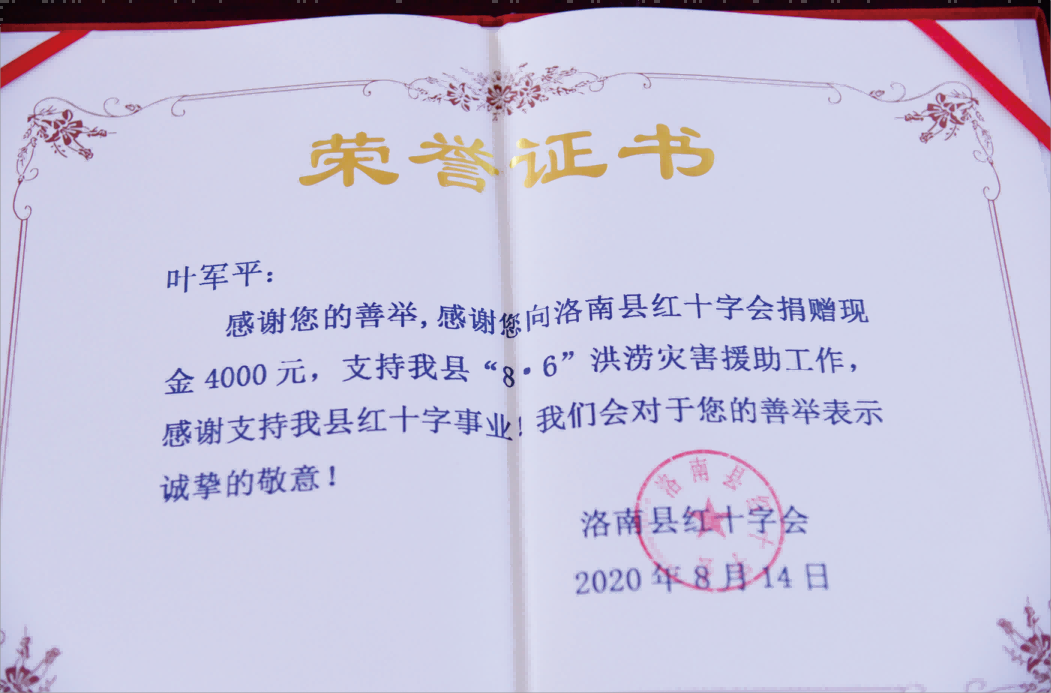 荣誉证书
叶军平：
感谢您的善举,感谢您向洛南县红十字会捐赠现
金 4000 元，支持我县“8·6”洪涝灾害援助工作，
感谢支持我县红十字事业！我们会对于您的善举表示
诚挚的敬意！
洛南县红十字会
洛南县红十字会
2020 年 8 月 14 日